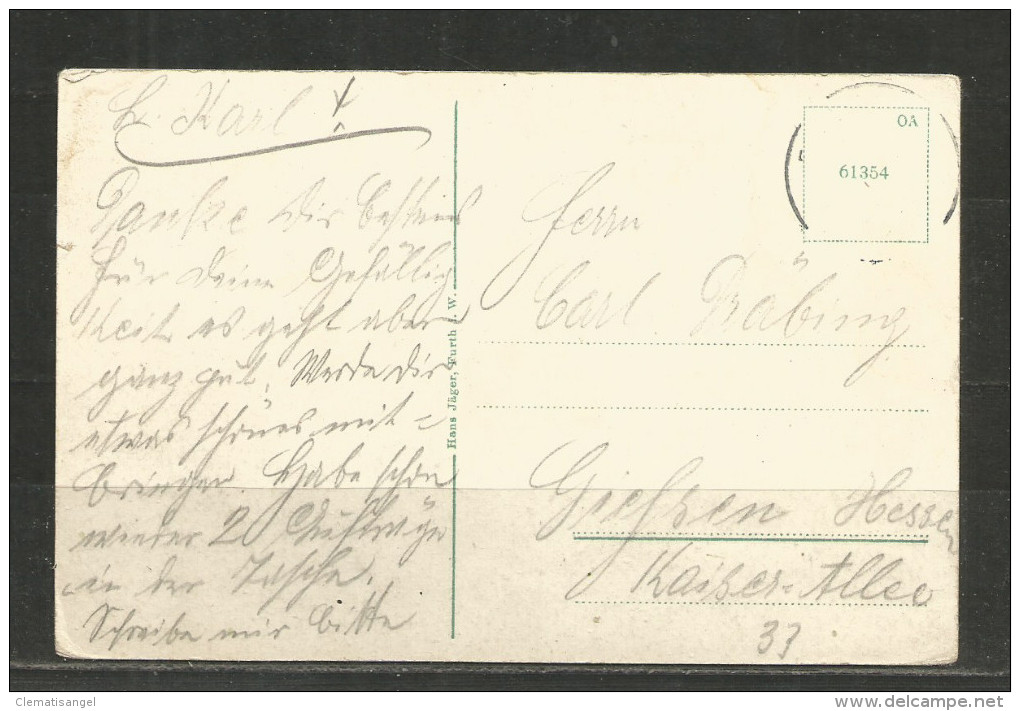 L. Karl!
Danke Dir bestens
für Deine Gefällig
keit es geht aber
ganz gut. Werde Dir
etwas schönes mit=
bringen. Habe schon
wieder 2 Aufträge
in der Tasche.
Schreibe mir bitte
Hans Jäger, Furth i. W.
OA
61354
Herrn
Carl Räbing
Giehsen Hessen
Kaiser-Allee
33
Clematisangel
www.delcampe.net